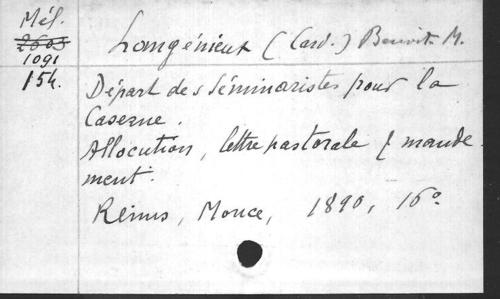 Mél.
2603
1091
154.
Langénieux (Card.) Benoit M.
Départ des séminaristes pour la
Caserne.
Allocution, lettre pastorale & mande-
ment.
Reims, Monce, 1890, 16°